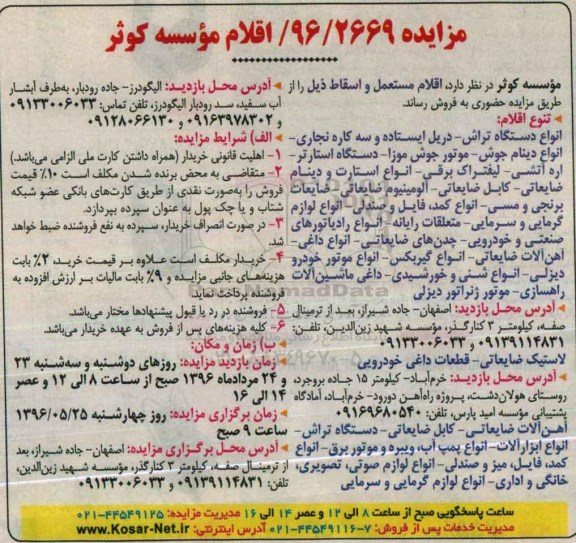 مزایده ۹۶/۲۶۶۹/ اقلام مؤسسه کوثر
مؤسسه کوثر در نظر دارد، اقلام مستعمل و اسقاط ذیل را از
طریق مزایده حضوری به فروش رساند.
◄ تنوع اقلام:
انواع دستگاه تراش- دریل ایستاده و سه کاره نجاری-
انواع دینام جوش- موتور جوش موزا- دستگاه استارتر-
اره آتشی- لیفتراک برقی- انواع استارت و دینام
ضایعاتی- کابل ضایعاتی- آلومینیوم ضایعاتی- ضایعات
برنجی و مسی- انواع کمد، فایل و صندلی- انواع لوازم
گرمایی و سرمایی- متعلقات رایانه- انواع رادیاتورهای
صنعتی و خودرویی- چدن‌های ضایعاتی- انواع داغی-
آهن‌آلات ضایعاتی- انواع گیربکس- انواع موتور خودرو
دیزلی- انواع شنی و خورشیدی- داغی ماشین‌آلات
راهسازی- موتور ژنراتور دیزلی
◄ آدرس محل بازدید: اصفهان- جاده شیراز، بعد از ترمینال
صفه، کیلومتر ۳ کنارگذر، مؤسسه شهید زین‌الدین، تلفن:
۰۹۱۳۹۱۱۴۸۳۱ و ۰۹۱۳۳۰۰۶۰۳۳
لاستیک ضایعاتی- قطعات داغی خودرویی
◄ آدرس محل بازدید: خرم‌آباد- کیلومتر ۱۵ جاده بروجرد،
روستای هولان‌دشت، پروژه راه‌آهن دورود- خرم‌آباد، آمادگاه
پشتیبانی مؤسسه امید پارس، تلفن: ۰۹۱۶۹۶۸۰۵۴۰
آهن‌آلات ضایعاتی- کابل ضایعاتی- دستگاه تراش-
انواع ابزارآلات- انواع پمپ آب، ویبره و موتور برق- انواع
کمد، فایل، میز و صندلی- انواع لوازم صوتی، تصویری،
خانگی و اداری- انواع لوازم گرمایی و سرمایی
◄ آدرس محل بازدید: الیگودرز- جاده رودبار، به‌طرف آبشار
آب سفید، سد رودبار الیگودرز، تلفن تماس: ۰۹۱۳۳۰۰۶۰۳۳
و ۰۹۱۶۳۹۷۸۳۰۲ و ۰۹۱۲۸۰۶۶۱۳۰
◄ الف) شرایط مزایده:
۱- اهلیت قانونی خریدار (همراه داشتن کارت ملی الزامی می‌باشد.)
۲- متقاضی به محض برنده شدن مکلف است ۱۰٪ قیمت
فروش را به‌صورت نقدی از طریق کارت‌های بانکی عضو شبکه
شتاب و یا چک پول به عنوان سپرده بپردازد.
۳- در صورت انصراف خریدار، سپرده به نفع فروشنده ضبط خواهد
شد.
۴- خریدار مکلف است علاوه بر قیمت خرید، ۲٪ بابت
هزینه‌های جانبی مزایده و ۹٪ بابت مالیات بر ارزش افزوده به
فروشنده پرداخت نماید.
۵- فروشنده در رد یا قبول پیشنهادها مختار می‌باشد.
۶- کلیه هزینه‌های پس از فروش به عهده خریدار می‌باشد.
◄ ب) زمان و مکان:
◄ زمان بازدید مزایده: روزهای دوشنبه و سه‌شنبه ۲۳
و ۲۴ مردادماه ۱۳۹۶ صبح از ساعت ۸ الی ۱۲ و عصر
۱۴ الی ۱۶
◄ زمان برگزاری مزایده: روز چهارشنبه ۱۳۹۶/۰۵/۲۵
ساعت ۹ صبح
◄ آدرس محل برگزاری مزایده: اصفهان- جاده شیراز، بعد
از ترمینال صفه، کیلومتر ۳ کنارگذر، مؤسسه شهید زین‌الدین،
تلفن: ۰۹۱۳۹۱۱۴۸۳۱ و ۰۹۱۳۳۰۰۶۰۳۳
ساعت پاسخگویی صبح از ساعت ۸ الی ۱۲ و عصر ۱۴ الی ۱۶ مدیریت مزایده: ۴۴۵۴۹۱۲۵-۰۲۱
مدیریت خدمات پس از فروش: ۷-۴۴۵۴۹۱۱۶-۰۲۱ آدرس اینترنتی: www.Kosar-Net.ir